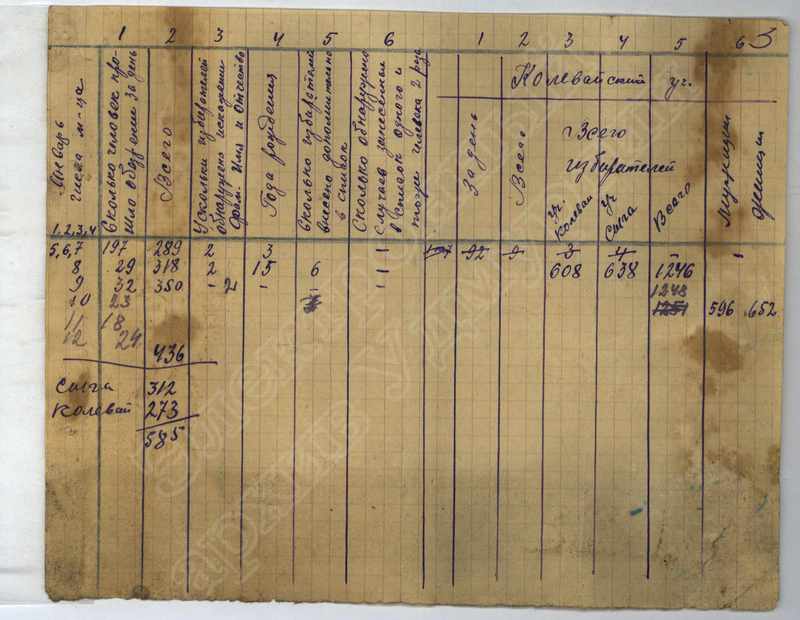 1 2 3 4 5 6 1 2 3 4 5 6 3
Январь
числа м-ца
1,2,3,4
Сколько человек про-
шло обозрение за день
Всего
У сколько избирателей
обнаружено искажени-
Фам. Имя и Отчество
Года рождения
Сколько избирателей
внесено дополнительно
в список
Сколько обнаружено
случаев занесенных
в список одного и
того же человека 2 раза
Колевайский уч.
За день
Всего
Всего
избирателей
Уч. Колевай
Уч Сыга
Всего
Мужчин
Женщин
5,6,7 197 289 2 3 - 92 3 4
8 29 318 2 15 6 608 638 1246
9 32 350 - - 1248
10 23 1251 596 652
11 18
12 24
436
Сыга 312
Колевай 273
585